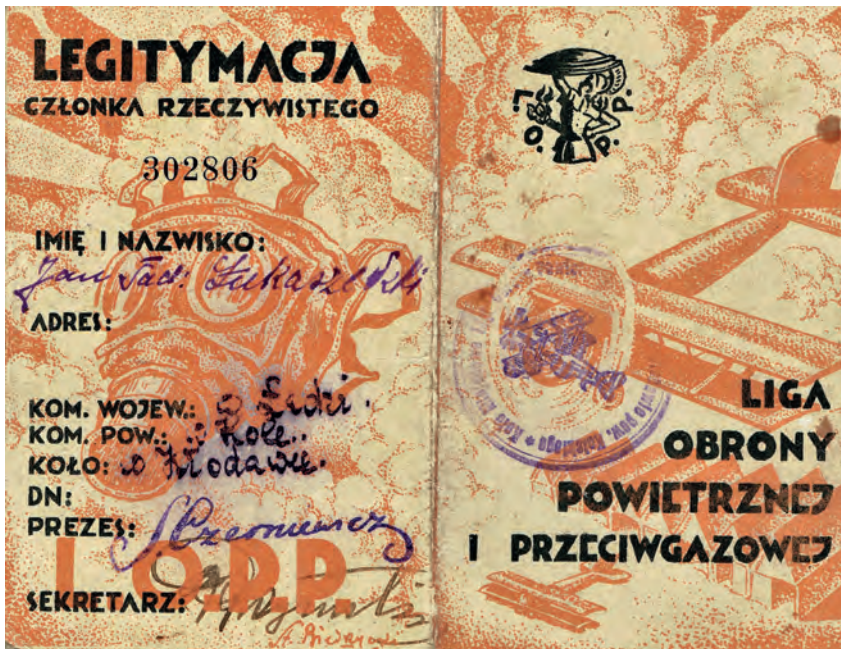 LEGITYMACJA
CZŁONKA RZECZYWISTEGO
302806
IMIĘ I NAZWISKO:
Jan Tad:
ADRES:
KOM. WOJEW.:
KOM. POW.: w Kole.
KOŁO: w Kłodawie.
DN:
PREZES: Czerniewicz
L.O.P.P.
SEKRETARZ:
L.O.P.P.
LIGA
OBRONY
POWIETRZNEJ
I PRZECIWGAZOWEJ